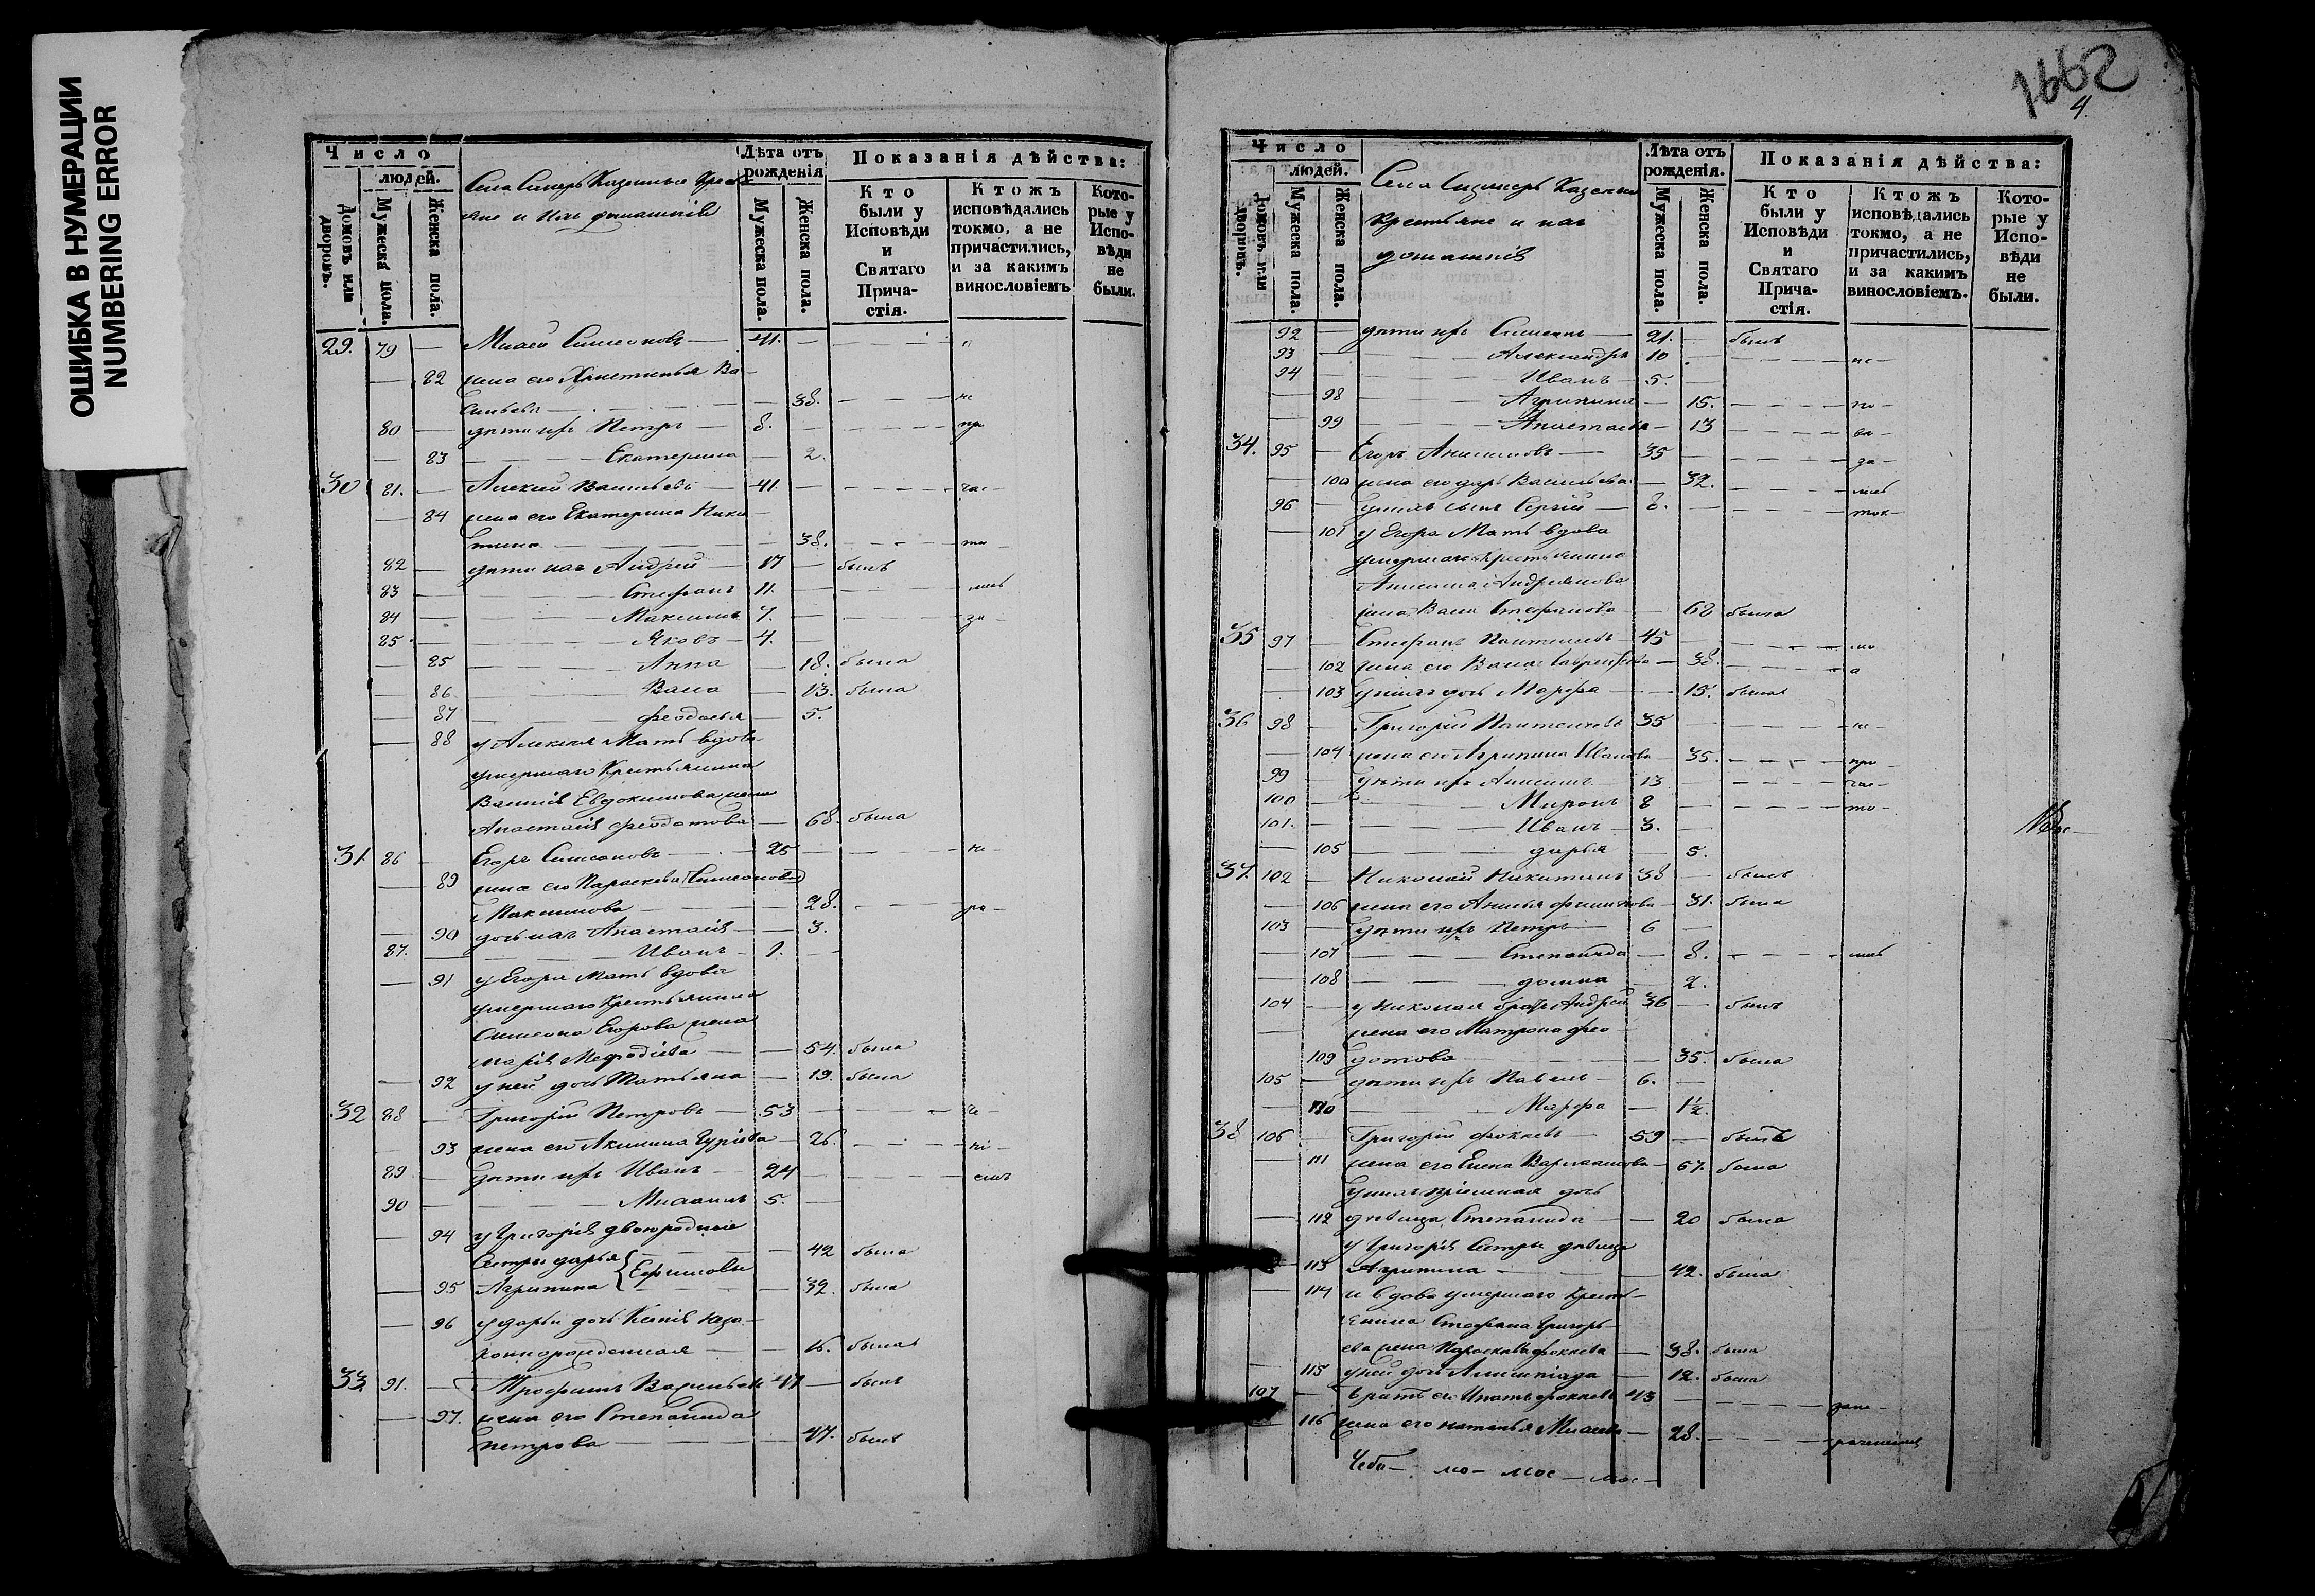 ОШИБКА В НУМЕРАЦИИ
NUMBERING ERROR
Число
людей.
Домовъ или дворовъ.
Мужеска пола.
Женска пола.
Села Казенные Крестьяне и ихъ домашнія
Лѣта отъ рожденія
Мужеска пола.
Женска пола.
Показанія дѣйства:
Кто были у Исповѣди и Святаго Прича-стія.
Ктожъ исповѣдались токмо, а не причастились, и за какимъ винословіемъ
Кото-рые у Испо-вѣди не были.
29. 79 — Симеоновъ — 41.
— 82 жена его Христинья Ва
сильева — 38. не
80 — дѣти ихъ Петръ — 8. — при
— 83 — Екатерина — 2.
30 81. — Алексій Васильевъ — 41. — час-
— 84 жена его Екатерина Ники
тина — 38.
82 — дѣти ихъ Андрей 17 — былъ
83 — Стефанъ 11.
84 — Максимъ 7. — за-
85. — Яковъ — 4.
— 85 — Анна — 18. была
— 86 — Васса — 13. была
— 87 — Феодосья — 5.
— 88 у Алексія Мать вдова
умершаго Крестьянина
Василія Евдокимова жена
Анастасія Феодотова — 68. была
31. 86 — Егоръ Симеоновъ — 25 — не-
— 89 жена его Параскева
Максимова — 28.
— 90 дочь ихъ Анастасія — 3.
87. — Иванъ — 1.
— 91 у Егора Мать вдова
умершаго Крестьянина
Симеона Егорова жена
Марія Мефодіева — 54. была
— 92 у ней дочь Татьяна — 19. была
32 88 — Григорій Петровъ — 53
— 93 жена его Акилина Гуріева — 26.
89 — дѣти ихъ Иванъ — 24
90 — Михаилъ 5.
— 94 у Григорія двоюродные
Сестры Дарья 42 была
— 95 Агрипина { Ефимовы 32. была
— 96 у Дарьи дочь Ксенія неза-
коннорожденная — 16. была
33 91. — Трофимъ Васильевъ 47 — былъ
— 97. жена его Степанида
Петрова — 47. была
1662
4.
Число
людей.
Домовъ или дворовъ.
Мужеска пола.
Женска пола.
Села Казенные
Крестьяне и ихъ
домашнія
Лѣта отъ рожденія.
Мужеска пола.
Женска пола.
Показанія дѣйства:
Кто были у Исповѣди и Святаго Прича-стія.
Ктожъ исповѣдались токмо, а не причастились, и за какимъ винословіемъ.
Кото-рые у Испо-вѣди не были.
92 — дѣти ихъ Симеонъ — 21. — былъ
93 — Александръ 10 — не-
94 — Иванъ — 5.
— 98 — Агрипина — 15.
— 99 — Анастасія — 13
34. 95 — Егоръ Анисимовъ — 35 — за-
— 100 жена его Дарья Васильева — 32.
96 — у нихъ сынъ Сергій — 8.
— 101 у Егора Мать вдова
умершаго Крестьянина
Анисима Андреянова
жена Васса Стефанова — 62 была
35 97 — Стефанъ Пантелеевъ — 45
— 102 жена его Васса Гавриілова — 38.
— 103 у нихъ дочь Марфа — 15. была
36 98 — Григорій Пантелеевъ 35 — не-
— 104 жена его Агрипина Иванова 35. — при-
99 — дѣти ихъ Анисимъ 13 — час-
100 — Миронъ 8
101. — Иванъ — 3.
— 105 — Дарья 5.
37. 102 — Николай Никитинъ 38 — былъ
— 106 жена его Анисья Филипова 31. была
103 — дѣти ихъ Петръ — 6
— 107 — Степанида — 8.
— 108 — Домна 2.
104 — у Николая братъ Андрей 36 — былъ
— жена его Матрона Фео-
109 дотова — 35. была
105 — дѣти ихъ Павелъ — 6.
— 110 — Марфа — 1½.
38 106 — Григорій Фокеевъ — 59 — былъ
— 111 жена его Елена Варлаамова — 57. была
у нихъ пріемная дочь
— 112 дѣвица Степанида — 20 была
у Григорія Сестры дѣвица
— 113 Агрипина — 42. была
— 114 и вдова умершаго Крестья-
нина Стефана Григорь-
ева жена Параскева Фокеева — 38. была
— 115 у ней дочь Алимпіада — 12. была
107 — братъ его Ипатъ Фокеевъ 43
— 116 жена его Наталья Михеева — 28.